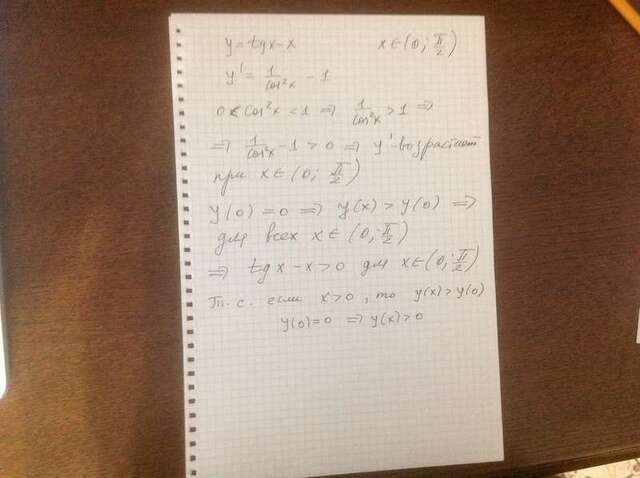 y = tgx - x x ∈ (0; π/2)
y' = 1/cos²x - 1
0 < cos²x < 1 ⇒ 1/cos²x > 1 ⇒
⇒ 1/cos²x - 1 > 0 ⇒ y' - возрастает
при x ∈ (0; π/2)
y(0) = 0 ⇒ y(x) > y(0) ⇒
для всех x ∈ (0; π/2)
⇒ tgx - x > 0 для x ∈ (0; π/2)
Т. е. если x > 0, то y(x) > y(0)
y(0) = 0 ⇒ y(x) > 0